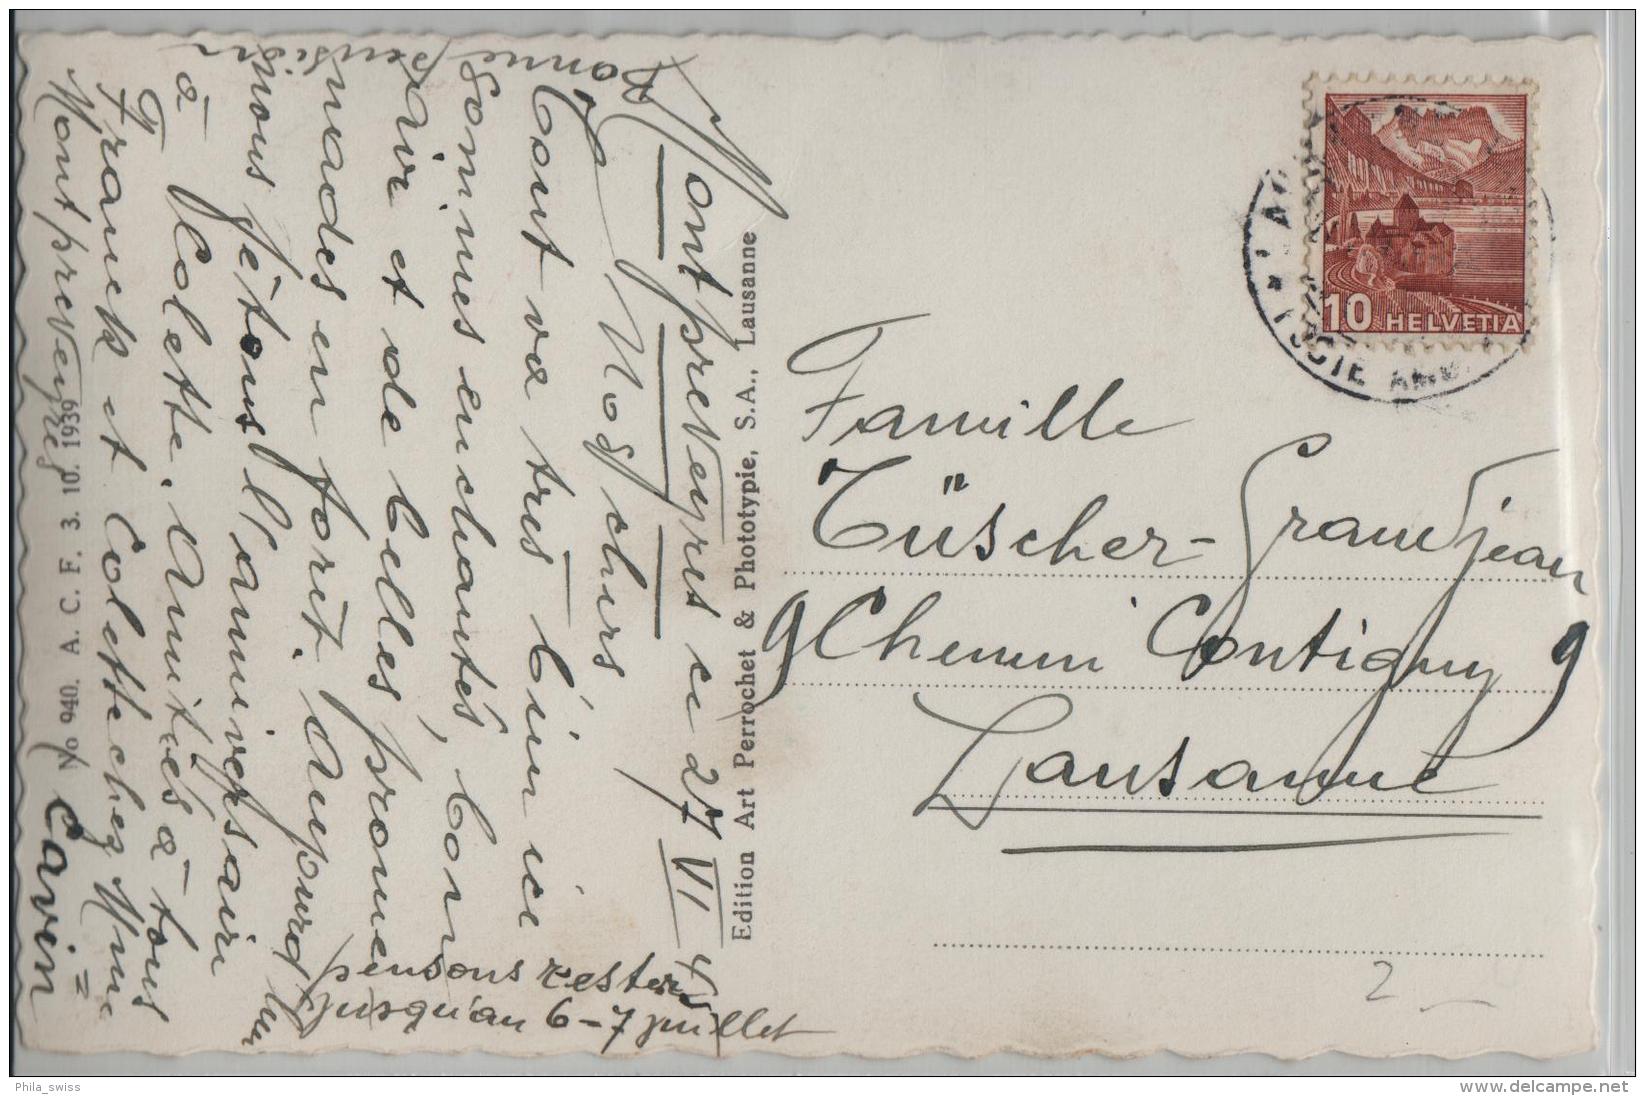 Montpreveyres ce 27 VI 4
Nos chers,
Tout va très bien ici
Sommes enchantés, bon
air et de belles prome
nades en forêt. Aujourd'hui
nous fêtons l'anniversaire
à Colette. Amitiés à tous
Franck et Colette chez Mme
Cavin =
Montpreveyres
bonne pension
pensons rester
jusqu'au 6-7 juillet
No 940. A. C. F. 3. 10. 1939
Edition Art Perrochet & Phototypie, S.A., Lausanne
10 HELVETIA
Famille
Tüscher-Grandjean
9 Chemin Contigny 9
Lausanne
2
Phila_swiss
https://www.delcampe.net